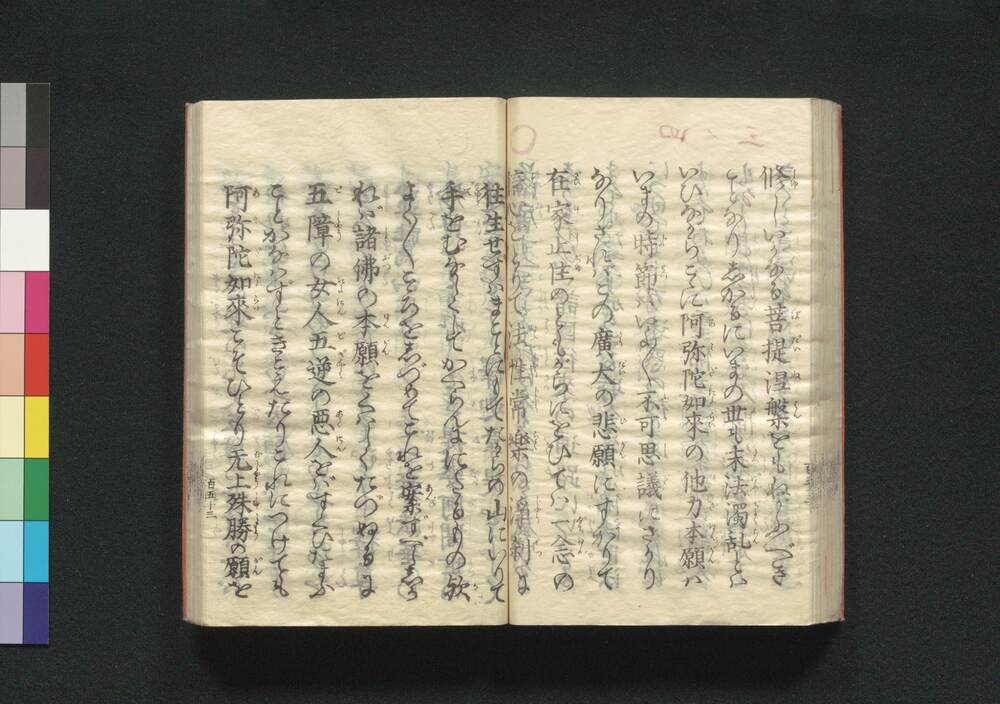 三ノ四
修していかなる菩提涅槃をもねかふへき
ことなりしかるにいまの世も末法濁乱とは
いひなからこゝに阿弥陀如來の他力本願ハ
いまの時節ハいよ〳〵不可思議にさかり
なりされハこの廣大の悲願にすかりて
在家止住のともからにをひてハ一念の
信心をとりて法性常樂の浄刹に
往生せすハまことにもてたからの山にいりて
手をむなしくしてかへらんにゝたるもの歟
よく〳〵こゝろをしつめてこれを案すへししか
れば諸佛の本願をくはしくたつぬるに
五障の女人五逆の悪人をばすくひたまふ
ことかなはずときこえたりこれにつけても
阿弥陀如來こそひとり无上殊勝の願を
百五十三